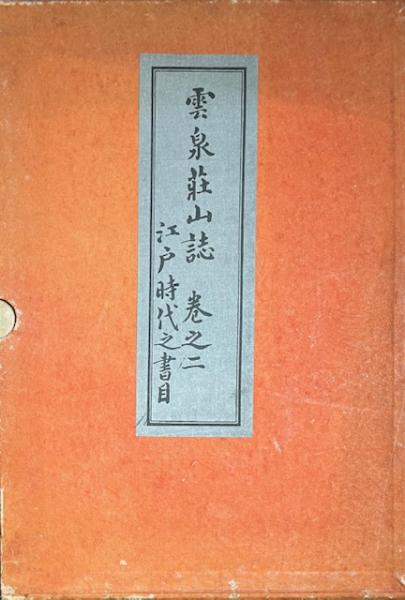 雲泉莊山誌 卷之二
江戸時代之書目